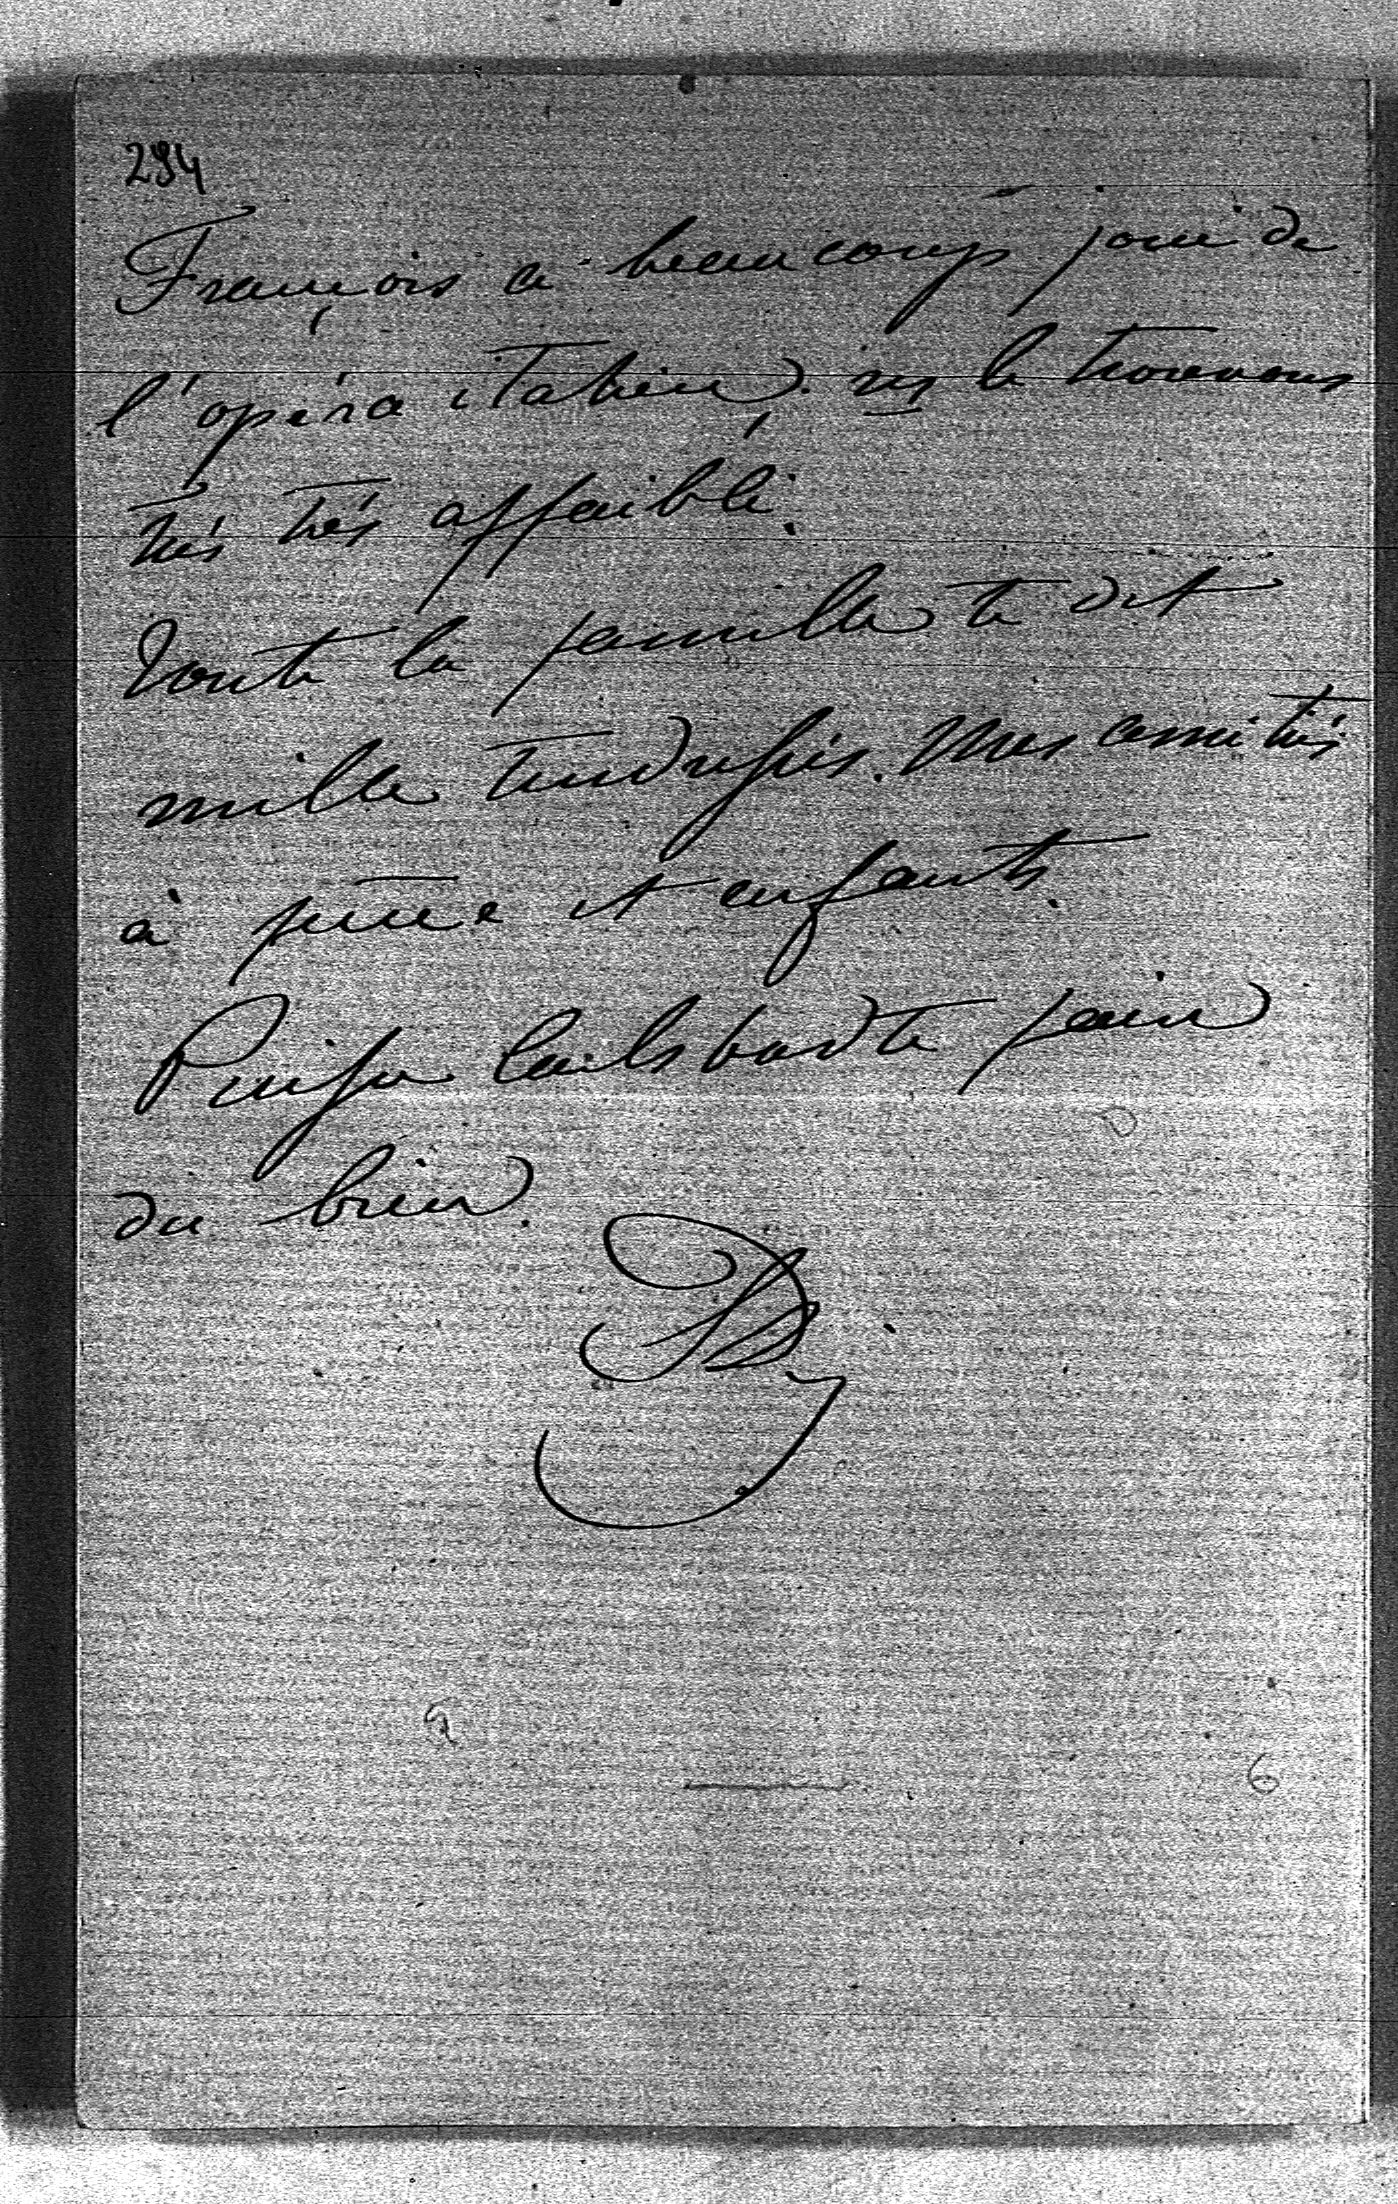 294
François a beaucoup joui de
l'opéra italien. ns le trouvons
très très affaibli.
Toute la famille te dit
mille tendresses. Mes amitiés
à femme et enfants.
Puisse Carlsbad te faire
du bien.
6